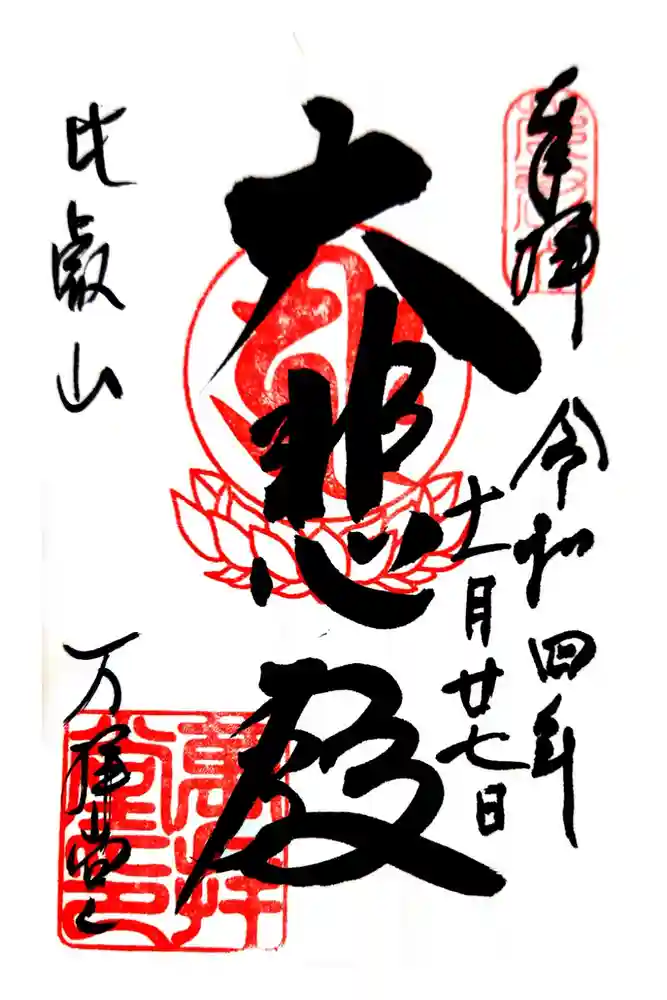 奉拝
令和四年
十一月廿七日
大悲殿
比叡山
万拝堂
萬拝
堂印